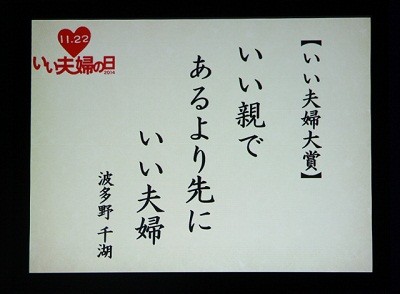 11.22
いい夫婦の日
2014
【いい夫婦大賞】
いい親で
あるより先に
いい夫婦
波多野 千湖